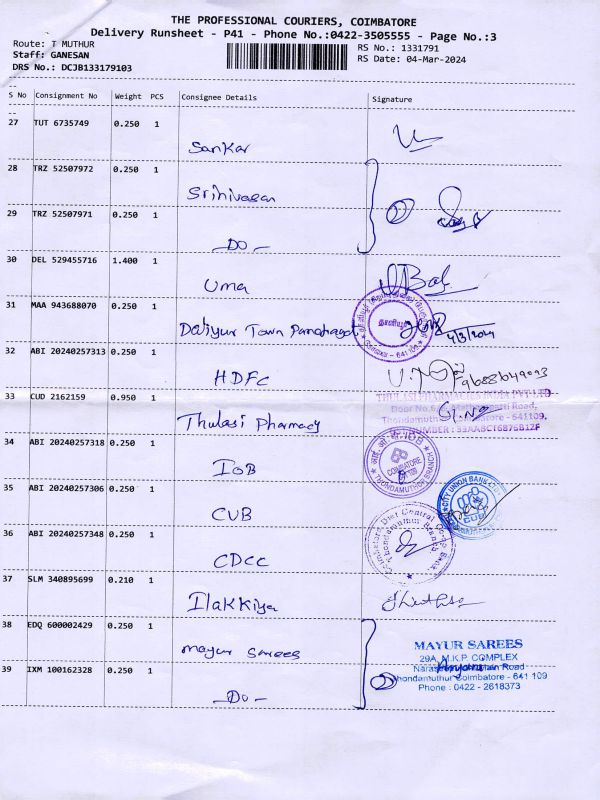 THE PROFESSIONAL COURIERS, COIMBATORE
Delivery Runsheet - P41 - Phone No.:0422-3505555 - Page No.:3
Route: T MUTHUR
Staff: GANESAN
DRS No.: DCJB133179103
RS No.: 1331791
RS Date: 04-Mar-2024
S No Consignment No Weight PCS Consignee Details Signature
27 TUT 6735749 0.250 1
Sankar
28 TRZ 52507972 0.250 1
Srinivasan
29 TRZ 52507971 0.250 1
- DO -
30 DEL 529455716 1.400 1
Uma
31 MAA 943688070 0.250 1
Town
தாளியூர்
641 109
4/3/2024
32 ABI 20240257313 0.250 1
HDFC
33 CUD 2162159 0.950 1
Thulasi Pharmacy
34 ABI 20240257318 0.250 1
IOB
COIMBATORE
THONDAMUTHUR BRANCH
35 ABI 20240257306 0.250 1
CUB
CITY UNION BANK
CUB
36 ABI 20240257348 0.250 1
CDCC
Coimbatore Dist Central Co-op Bank
Thondamuthur Branch
37 SLM 340895699 0.210 1
Ilakkiya
38 EDQ 600002429 0.250 1
Mayur Sarees
MAYUR SAREES
29A, M.K.P. COMPLEX
Road
Thondamuthur Coimbatore - 641 109
Phone : 0422 - 2618373
39 IXM 100162328 0.250 1
- DO -